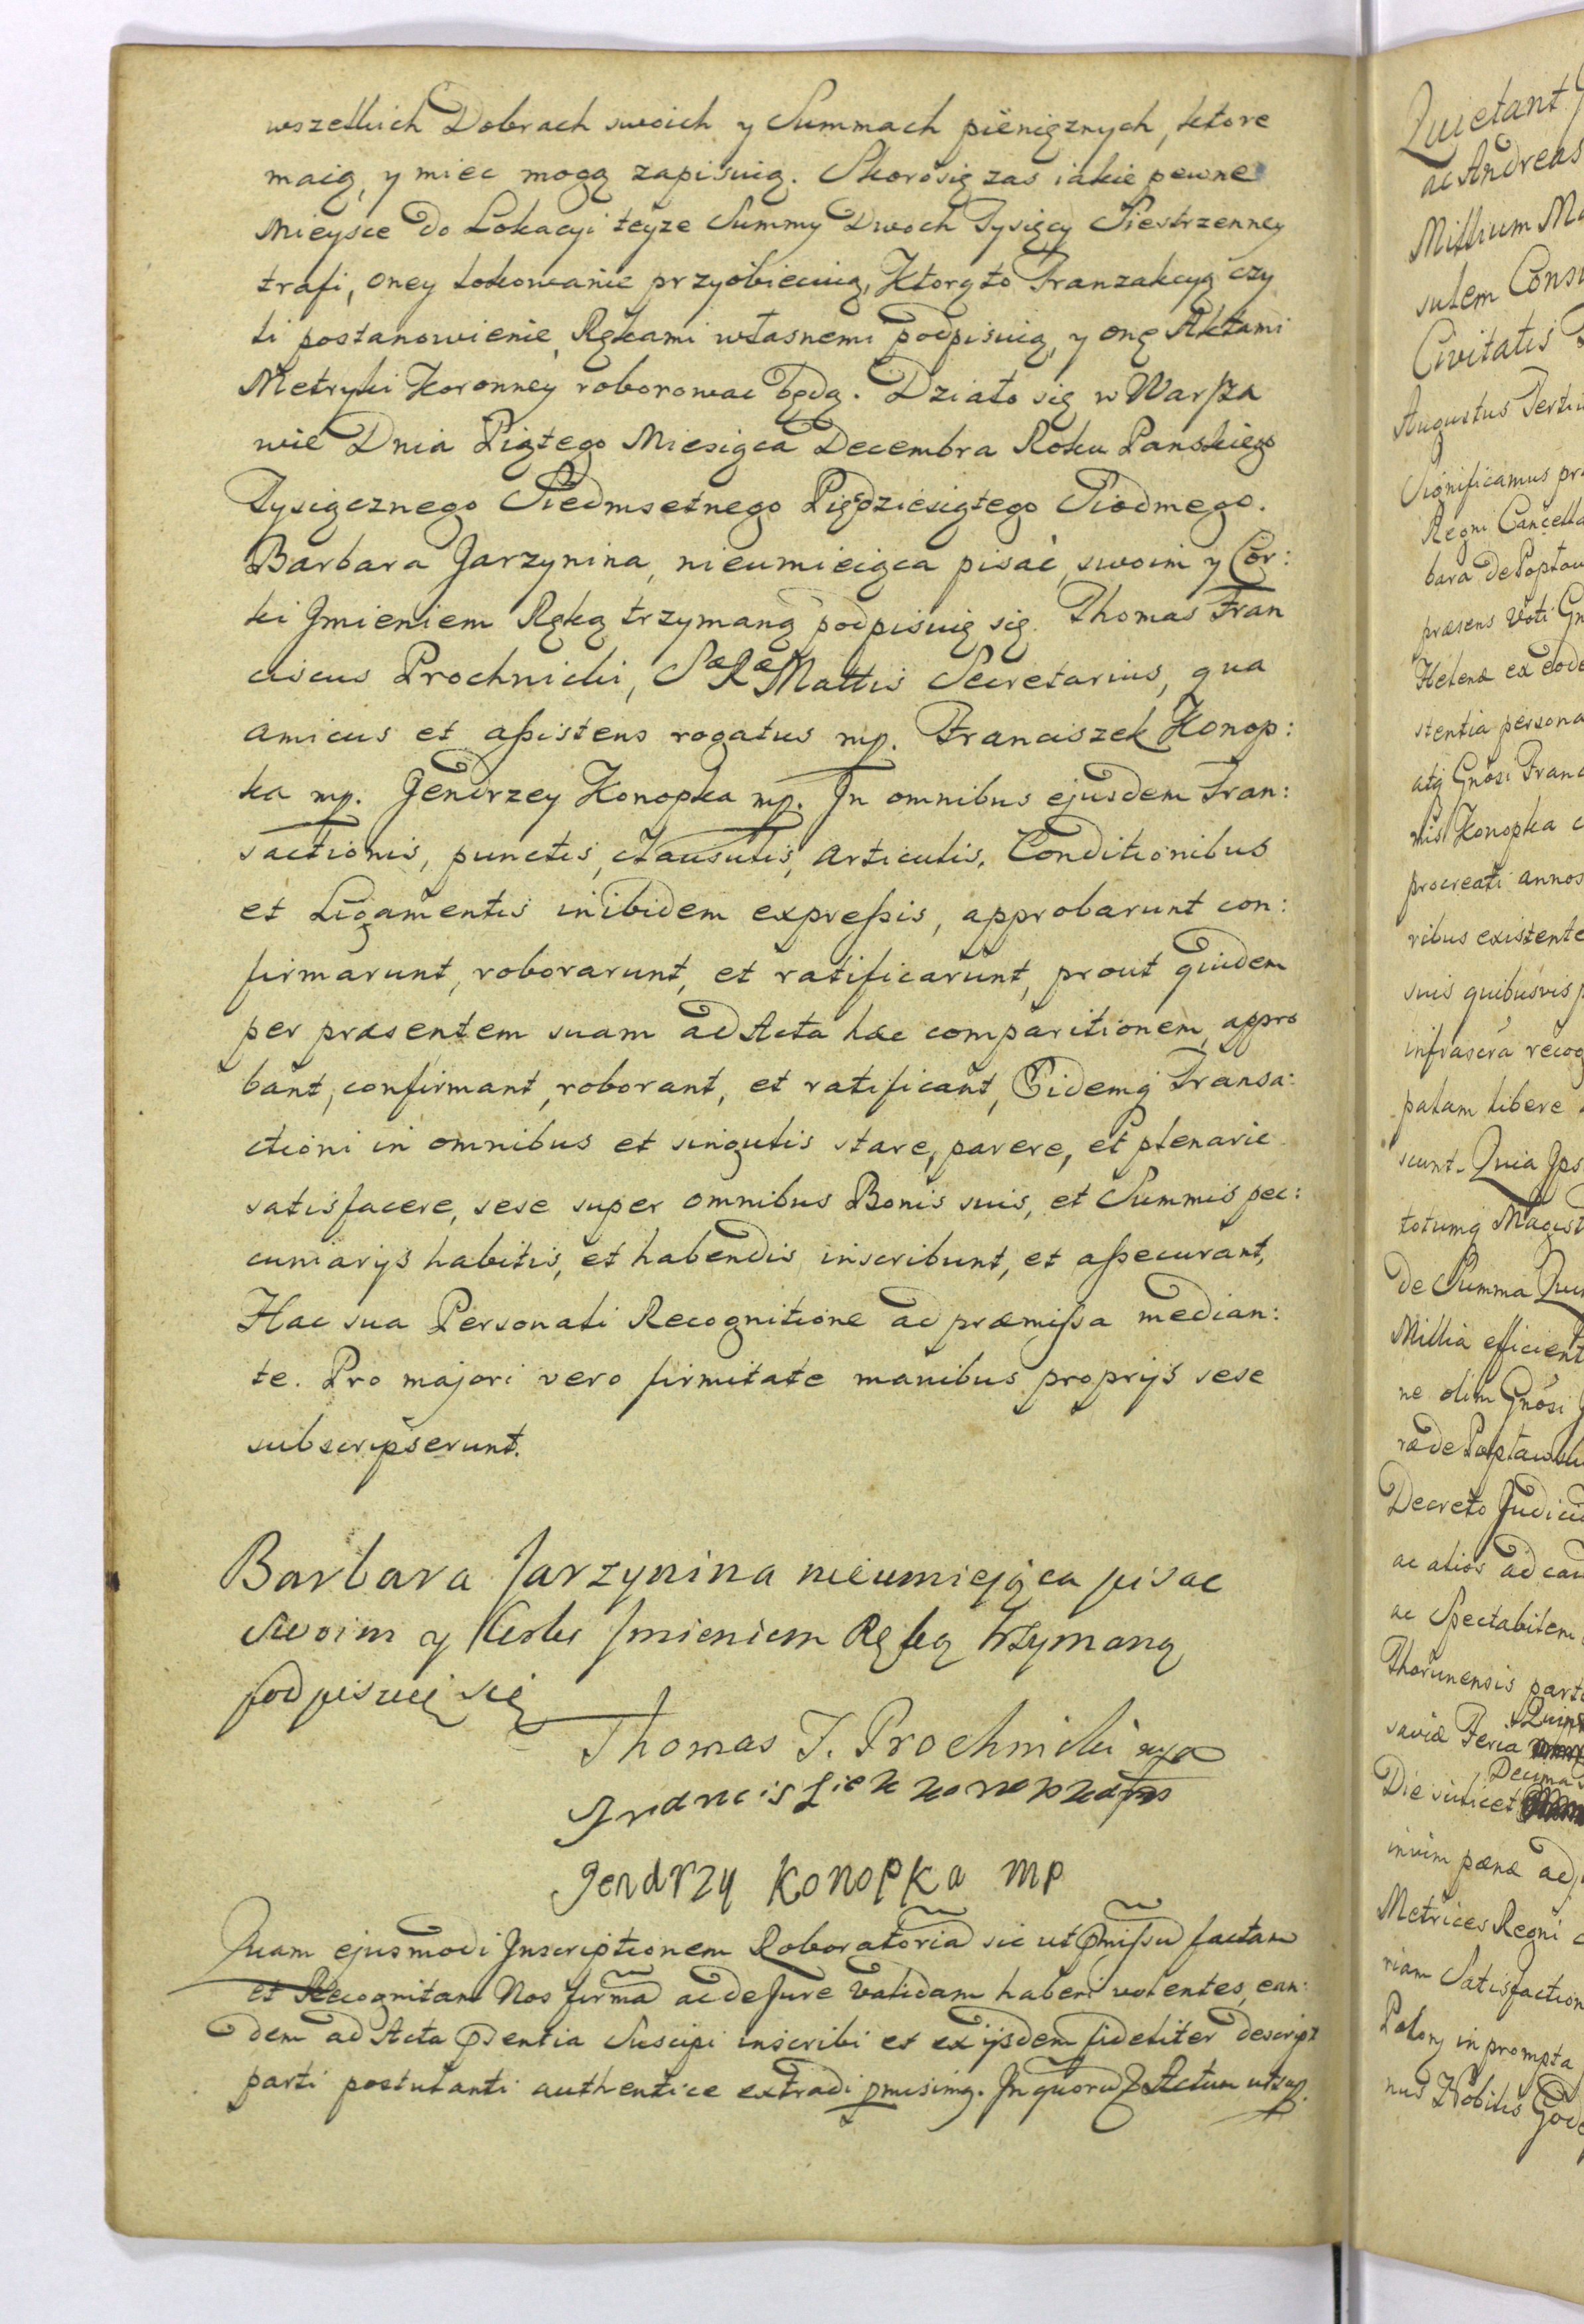 wszelkich Dobrach swoich y Summach pieniężnych, ktore
maią, y miec mogą zapisuią. Skorosię zas iakie pewne
Mieysce do Lokacyi teyze Summy Dwoch Tysięcy Siestrzenney
trafi, oney Lokowanie przyobiecuią, Ktorąto Tranzakcyą czy
li postanowienie, Rękami własnemi podpisuią, y onę Aktami
Metryki Koronney roborowac będą. Działo się w Warsza
wie Dnia Piątego Miesiąca Decembra Roku Panskiego
Tysiącznego Siedmsetnego Pięcdziesiątego Siodmego.
Barbara Jarzynina, nieumieiąca pisać, swoim y Cor:
ki Jmieniem Ręką trzymaną podpisuię się. Thomas Fran
ciscus Prochnicki, Sæ Ræ Mattis Secretarius, qua
amicus et aßistens rogatus mp. Franciszek Konop:
ka mp. Jendrzey Konopka mp. Jn omnibus ejusdem Tran:
sactionis, punctis, clausulis, articulis, Conditionibus
et Ligamentis inibidem expreßis, approbarunt con:
firmarunt, roborarunt, et ratificarunt, prout quidem
per præsentem suam ad Acta hæc comparitionem, appro
bant, confirmant, roborant, et ratificant, Eidemq Transa:
ctioni in omnibus et singulis stare, parere, et plenarie
satisfacere, sese super omnibus Bonis suis, et Summis pec:
cuniarijs habitis, et habendis inscribunt, et aßecurant,
Hac sua Personali Recognitione ad præmißa median:
te. Pro majori vero firmitate manibus proprijs sese
subscripserunt.
Barbara Jarzynina nieumiejąca pisac
Swoim y Corki Jmieniem Ręką trzymaną
podpisuię się
Thomas F. Prochnicki mpa
Franciszek Konopka mp
Jendrzy Konopka mp
Quam ejusmodi Jnscriptionem Roboratoria sic ut pmißu factam
et Recognitam Nos firma ac de Jure validam haberi volentes, ean:
dem ad Acta psentia Suscipi inscribi et ex ijsdem fideliter descript
parti postulanti authentice extradi pmisimq. Jn quoru Actum ut sup.
Quietant
ac Andreas
Millium
sulem
Civitatis
Augustus Terti
Significamus
Regni Cancella
bara de
præsens Voti
Helenæ ex eode
stentia persona
atq Gnosi Franc
nis Konopka
procreati annos
ribus existente
suis quibusvis
infrascra recog
palam libere
scunt. Quia Jps
totumq Magist
de Summa
Millia efficient
ne olim Gnosi
ra de
Decreto Judici
ac alios ad cau
ac Spectabilem
Thorunensis parti
saviæ Feria
Decima
Die scilicet
invim pænæ ad
Metrices Regni
riam Satisfaction
Polon in prompta
nus Nobilis